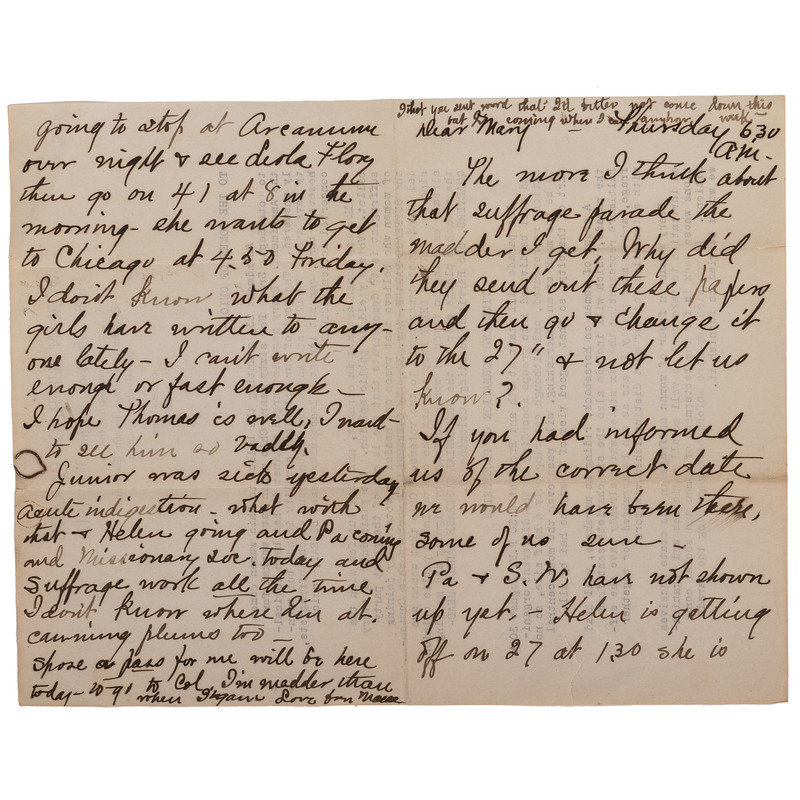 that you sent word that I'd better not come down this week
but I'm coming when I can anyhow
Dear Mary — Thursday 6 30
A.M.
The more I think about
that suffrage parade the
madder I get. Why did
they send out these papers
and then go & change it
to the 27" & not let us
know?
If you had informed
us of the correct date
we would have been there,
some of us sure —
Pa & S. W. have not shown
up yet. — Helen is getting
off on 27 at 130 she is
going to stop at Arcanum
over night & see Leola Flory
then go on 41 at 8 in the
morning - she wants to get
to Chicago at 4.50 Friday.
I don't know what the
girls have written to any-
one lately - I can't write
enough or fast enough —
I hope Thomas is well, I want
to see him so badly.
Junior was sick yesterday
acute indigestion - what with
that & Helen going and Pa coming
and Missionary Soc. today and
suffrage work all the time
I don't know where I'm at.
canning plums too —
Spose a pass for me will be here
today - to go to Col. I'm madder than
when I began Love from